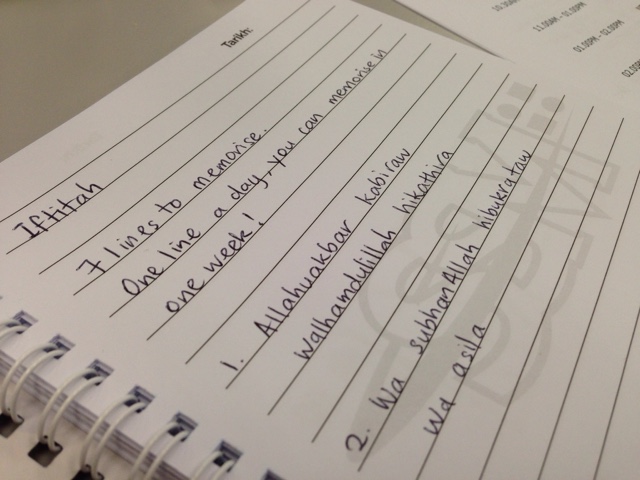 Tarikh:
Iftitah
7 lines to memorise.
One line a day, you can memorise in
one week!
1. Allahuakbar kabiraw
walhamdulillah hikathira
2. Wa subhanAllah hibukrataw
wa asila
11.00AM - 01.00PM
01.00PM - 02.00PM